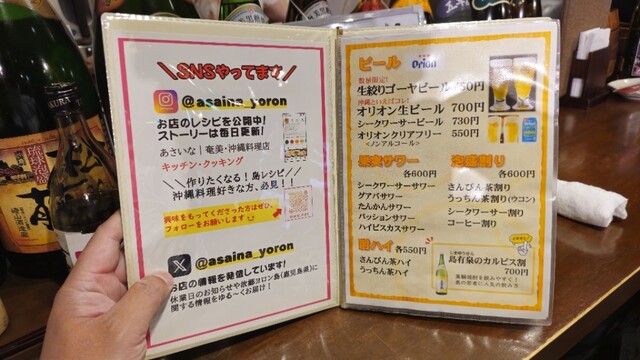 ＼SNSやってます／
@asaina_yoron
お店のレシピを公開中!
ストーリーは毎日更新!
あさいな | 奄美・沖縄料理店
キッチン・クッキング
＼作りたくなる! 島レシピ／
沖縄料理好きな方、必見!!
興味をもってくださった方はぜひ、
フォローをお願いします
@asaina_yoron
お店の情報を発信しています!
休業日のお知らせや故郷ヨロン島(鹿児島県)に
関する情報をゆる～くお届け!
ビール
Orion
数量限定!
生絞りゴーヤビール 750円
沖縄といえばコレ!
オリオン生ビール 700円
シークワーサービール 730円
オリオンクリアフリー 550円
<ノンアルコール>
果実サワー
各600円
シークワーサーサワー
グアバサワー
たんかんサワー
パッションサワー
ハイビスカスサワー
泡盛割り
各600円
さんぴん茶割り
うっちん茶割り(ウコン)
シークワーサー割り
コーヒー割り
酎ハイ 各550円
さんぴん茶ハイ
うっちん茶ハイ
島有泉のカルピス割
700円
黒糖焼酎を飲みやすく!
島の若者に人気の飲み方